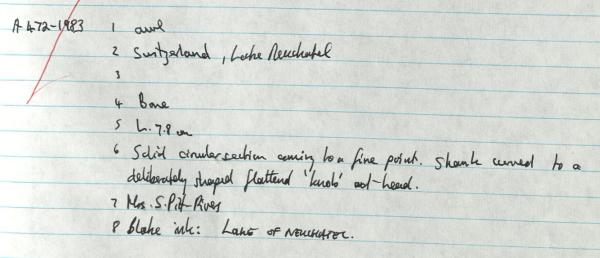 A 472-1983 1 awl
2 Switzerland, Lake Neuchatel
3
4 Bone
5 L. 7.8 cm
6 Solid circular section coming to a fine point. Shank curved to a
deliberately shaped flattend "knob" at head.
7 Mrs. S. Pitt-Rivers
8 Blake ink: LAKE OF NEUCHATEL.